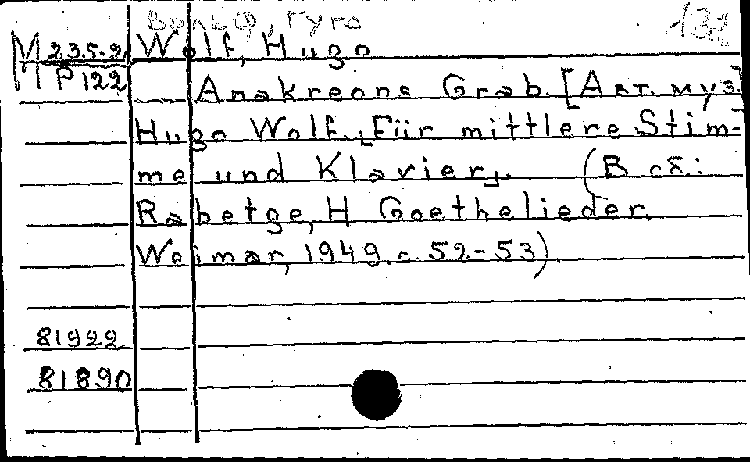 Вольф, Гуго
132
М 235-2 Wolf, Hugo
Р 122 Anakreons Grab. [Авт. муз.]
Hugo Wolf. Für mittlere Stim-
me und Klavier. (В сб.:
Rabetge, H Goethelieder.
Weimar, 1949, с. 52-53).
81922
81890